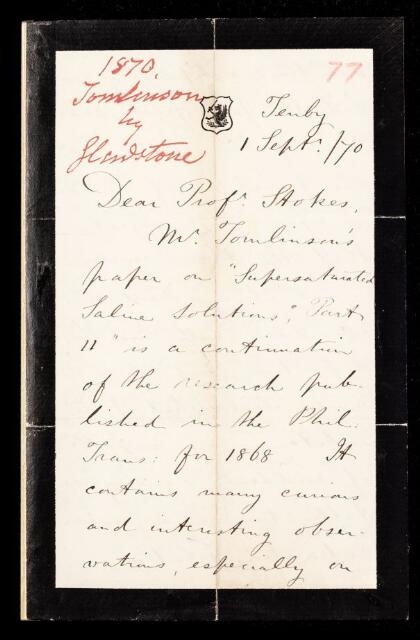 1870.
Tomlinson
by
Gladstone
77
Tenby
1 Septr. /70
Dear Profr. Stokes,
Mr. Tomlinson's
paper on "Supersaturated
Saline Solutions", Part
II" is a continuation
of the research pub-
lished in the Phil.
Trans: for 1868 It
contains many curious
and interesting obser-
vations, especially on